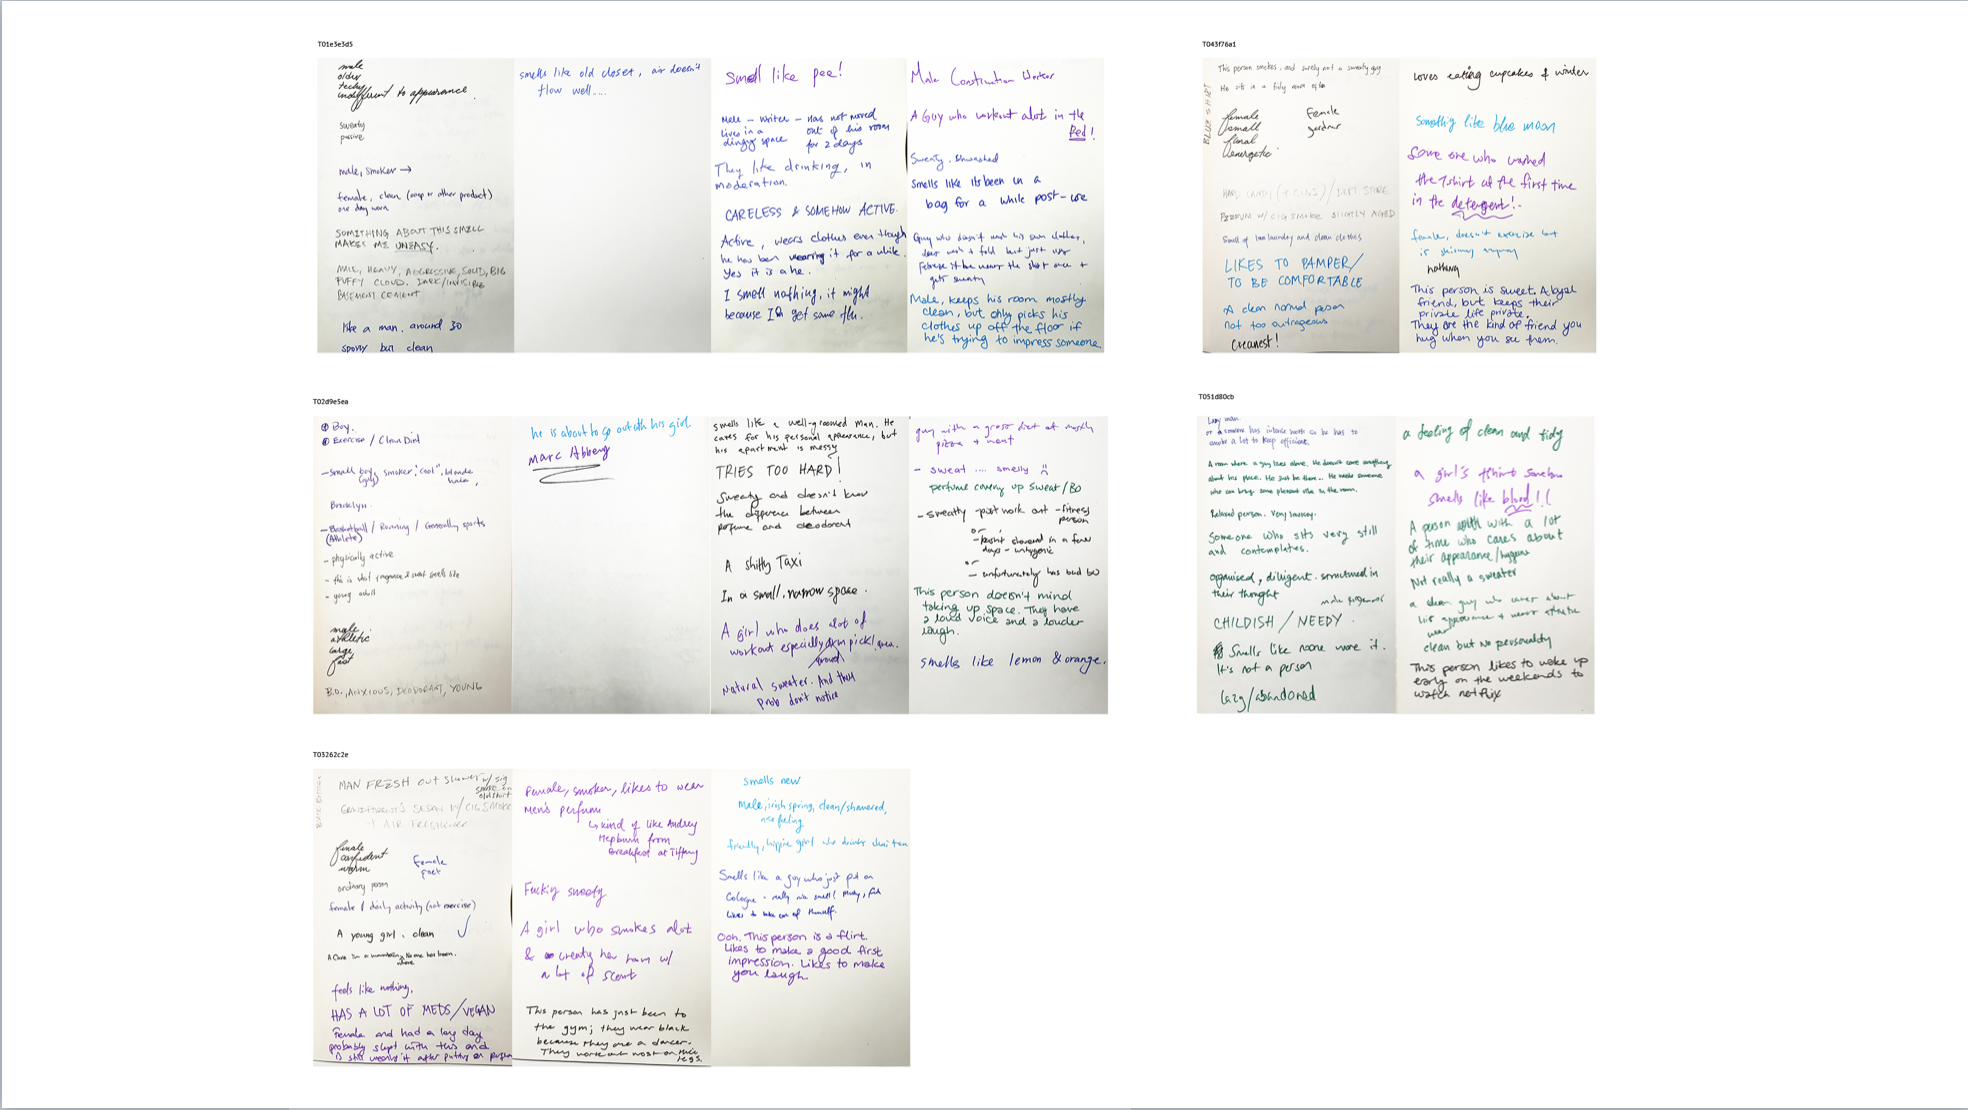 T01e3e3d5
male
older
techy
indifferent to appearance
sweaty
passive
male, smoker →
female, clean (soap or other product)
one day worn
SOMETHING ABOUT THIS SMELL
MAKES ME UNEASY.
MALE, HEAVY, AGGRESSIVE, SOLID, BIG
PUFFY CLOUD. DARK/INVISIBLE
BASEMENT CEMENT
like a man. around 30
sporty but clean
smells like old closet, air doesn't
flow well.....
Smell like pee!
Male - writer - has not moved
lives in a out of his room
dingy space for 2 days
They like drinking, in
moderation.
CARELESS & SOMEHOW ACTIVE.
Active, wears clothes even though
he has been wearing it for a while.
Yes it is a he.
I smell nothing, it might
because I get some flu.
Male Construction Worker
A Guy who workout alot in the
Bed!
Sweaty. Unwashed
Smells like its been in a
bag for a while post-use
Guy who doesn't wash his own clothes,
does wash & fold but just uses
Febreze if he wears the shirt once +
gets sweaty
Male, keeps his room mostly
clean, but only picks his
clothes up off the floor if
he's trying to impress someone.
T043f76a1
This person smokes, and surely not a sweaty guy
He sits in a tidy
female
small
floral
energetic
Female
gardener
HARD CANDY / DEPT STORE
W/ CIG SMOKE SLIGHTLY AGED
Smell of laundry and clean clothes
LIKES TO PAMPER/
TO BE COMFORTABLE
A clean normal person
not too outrageous
Cleanest!
loves eating cupcakes & winter
Something like blue moon
Some one who washed
the T-shirt at the first time
in the detergent!.
female, doesn't exercise but
is skinny anyway
nothing
This person is sweet. A loyal
friend, but keeps their
private life private.
They are the kind of friend you
hug when you see them.
T02d9e5ea
Boy.
Exercise / Clean Diet
- Small boy, smoker, "cool", blonde
(guy) hair,
Brooklyn.
- Basketball / Running / Generally sports
(Athlete)
- physically active
- this is what fragrance & sweat smells like
- young adult
male
athletic
large
fast
B.O., ANXIOUS, DEODORANT, YOUNG
he is about to go out with his girl.
Marc Abbeny
smells like a well-groomed man. He
cares for his personal appearance, but
his apartment is messy
TRIES TOO HARD!
Sweaty and doesn't know
the difference between
perfume and deodorant
A shitty Taxi
In a small, narrow space.
A girl who does alot of
workout especially arm pick! area.
Natural sweater. And they
prob don't notice
guy with a gross diet of mostly
pizza & meat
- sweat .... smelly
perfume covering up sweat/BO
- sweatty - post work out - fitness
person
- hasn't showered in a few
days - unhygenic
- unfortunately has bad bo
This person doesn't mind
taking up space. They have
a loud voice and a louder
laugh.
smells like lemon & orange.
T051d80cb
Lazy man.
or someone has intense work so he has to
smoke a lot to keep efficient.
A room where a guy lives alone. He doesn't care anything
about his place. He just be there... He needs someone
who can bring some pleasant vibe in the room.
Relaxed person. Very
Someone who sits very still
and contemplates.
organised, diligent. structured in
their thought
CHILDISH / NEEDY.
Smells like none wore it.
It's not a person
lazy/abandoned
a feeling of clean and tidy
a girl's tshirt somehow
smells like blood!!
A person with a lot
of time who cares about
their appearance/hygiene
Not really a sweater
a clean guy who cares about
his appearance + wears athletic
wear
clean but no personality
This person likes to wake up
early on the weekends to
watch netflix
T03262c2e
MAN FRESH OUT SHOWER W/ CIG
SMOKE ON
OLD SHIRT
GRANDPARENT'S SEDAN W/ CIG SMOKE
+ AIR FRESHENER
female
confident
warm
Female
poet
ordinary person
female / daily activity (not exercise)
A young girl. clean
A Cave in a mountain. No one has been.
feels like nothing.
HAS A LOT OF MEDS/VEGAN
Female and had a long day
probably slept with this and
is still wearing it after putting on perfume
Female, smoker, likes to wear
Men's perfume
↳ kind of like Audrey
Hepburn from
Breakfast at Tiffany
Fuckin snooty
A girl who smokes alot
& w/
a lot of scent
This person has just been to
the gym; they wear black
because they are a dancer.
They work out most on their
legs.
smells new
Male, irish spring, clean/showered,
nice feeling
friendly, hippie girl who drinks chai tea
Smells like a guy who just put on
Cologne - really nice smell!
Likes to take care of himself.
Ooh. This person is a flirt.
Likes to make a good first
impression. Likes to make
you laugh